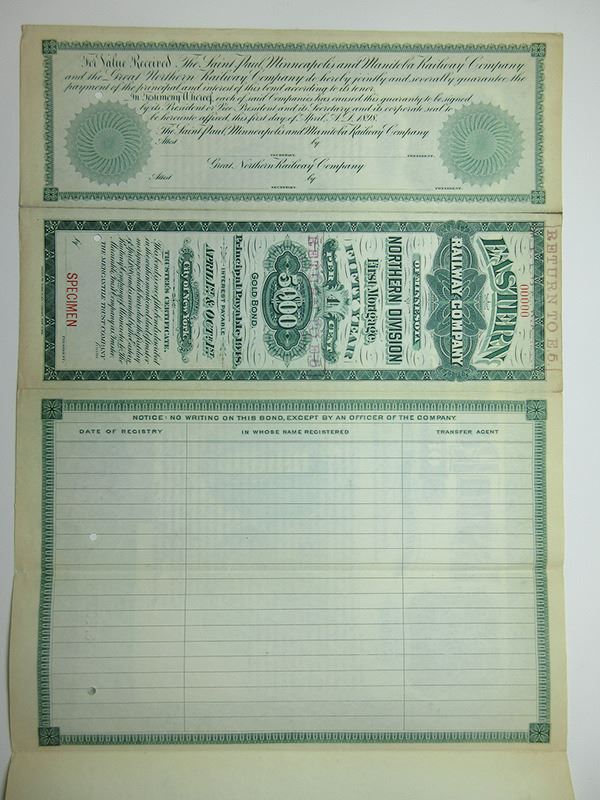 For Value Received, The Saint Paul, Minneapolis and Manitoba Railway Company
and the Great Northern Railway Company do hereby jointly and severally guarantee the
payment of the principal and interest of this bond according to its tenor.
In Testimony Whereof, each of said Companies has caused this guaranty to be signed
by its President or Vice President and its Secretary and its corporate seal to
be hereunto affixed, this first day of April, A.D. 1898.
The Saint Paul, Minneapolis and Manitoba Railway Company
Attest by
SECRETARY. PRESIDENT.
Great Northern Railway Company
Attest by
SECRETARY. PRESIDENT.
RETURN TO E 5
000000
EASTERN
RAILWAY COMPANY
OF MINNESOTA
NORTHERN DIVISION
First Mortgage
FIFTY YEAR
PER 4 CENT
$5000
GOLD BOND.
Principal Payable 1948.
INTEREST PAYABLE
APRIL 1st & OCT. 1st
City of New York.
TRUSTEE'S CERTIFICATE.
THE MERCANTILE TRUST COMPANY
by
SPECIMEN
NOTICE: NO WRITING ON THIS BOND, EXCEPT BY AN OFFICER OF THE COMPANY
DATE OF REGISTRY IN WHOSE NAME REGISTERED TRANSFER AGENT